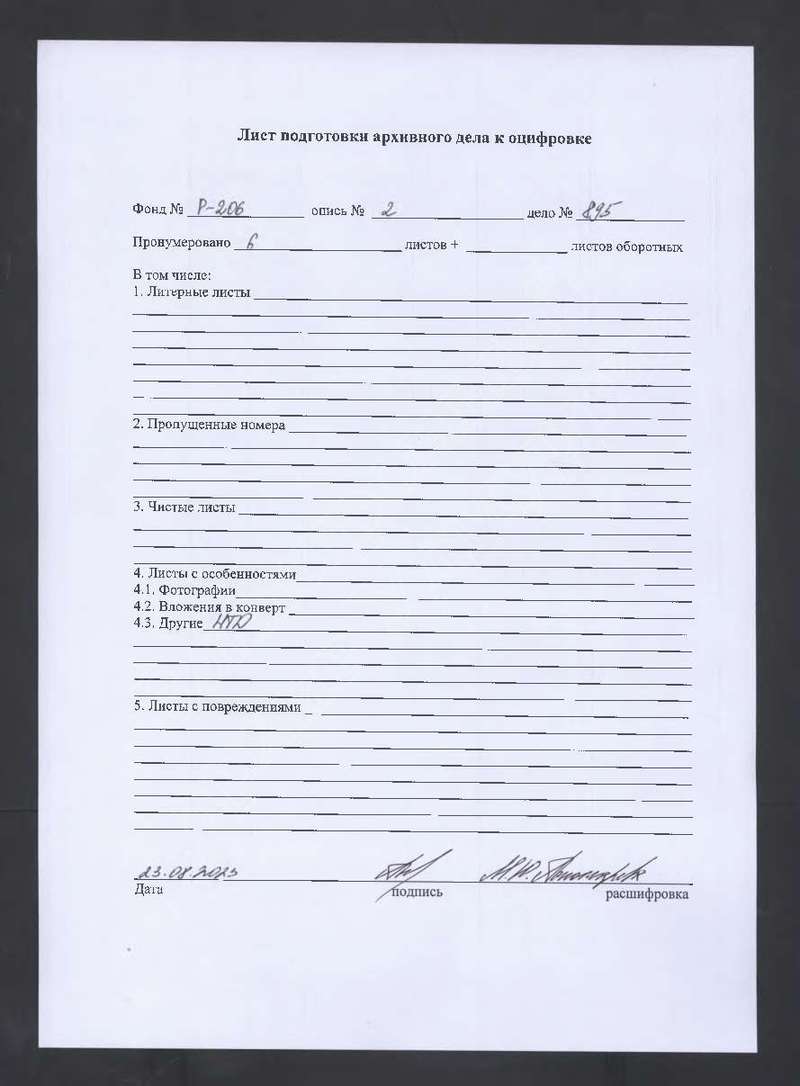 Лист подготовки архивного дела к оцифровке
Фонд № Р-206 опись № 2 дело № 895
Пронумеровано 6 листов + листов оборотных
В том числе:
1. Литерные листы
2. Пропущенные номера
3. Чистые листы
4. Листы с особенностями
4.1. Фотографии
4.2. Вложения в конверт
4.3. Другие НТД
5. Листы с повреждениями
23.08.2023 М.Ю.
Дата подпись расшифровка